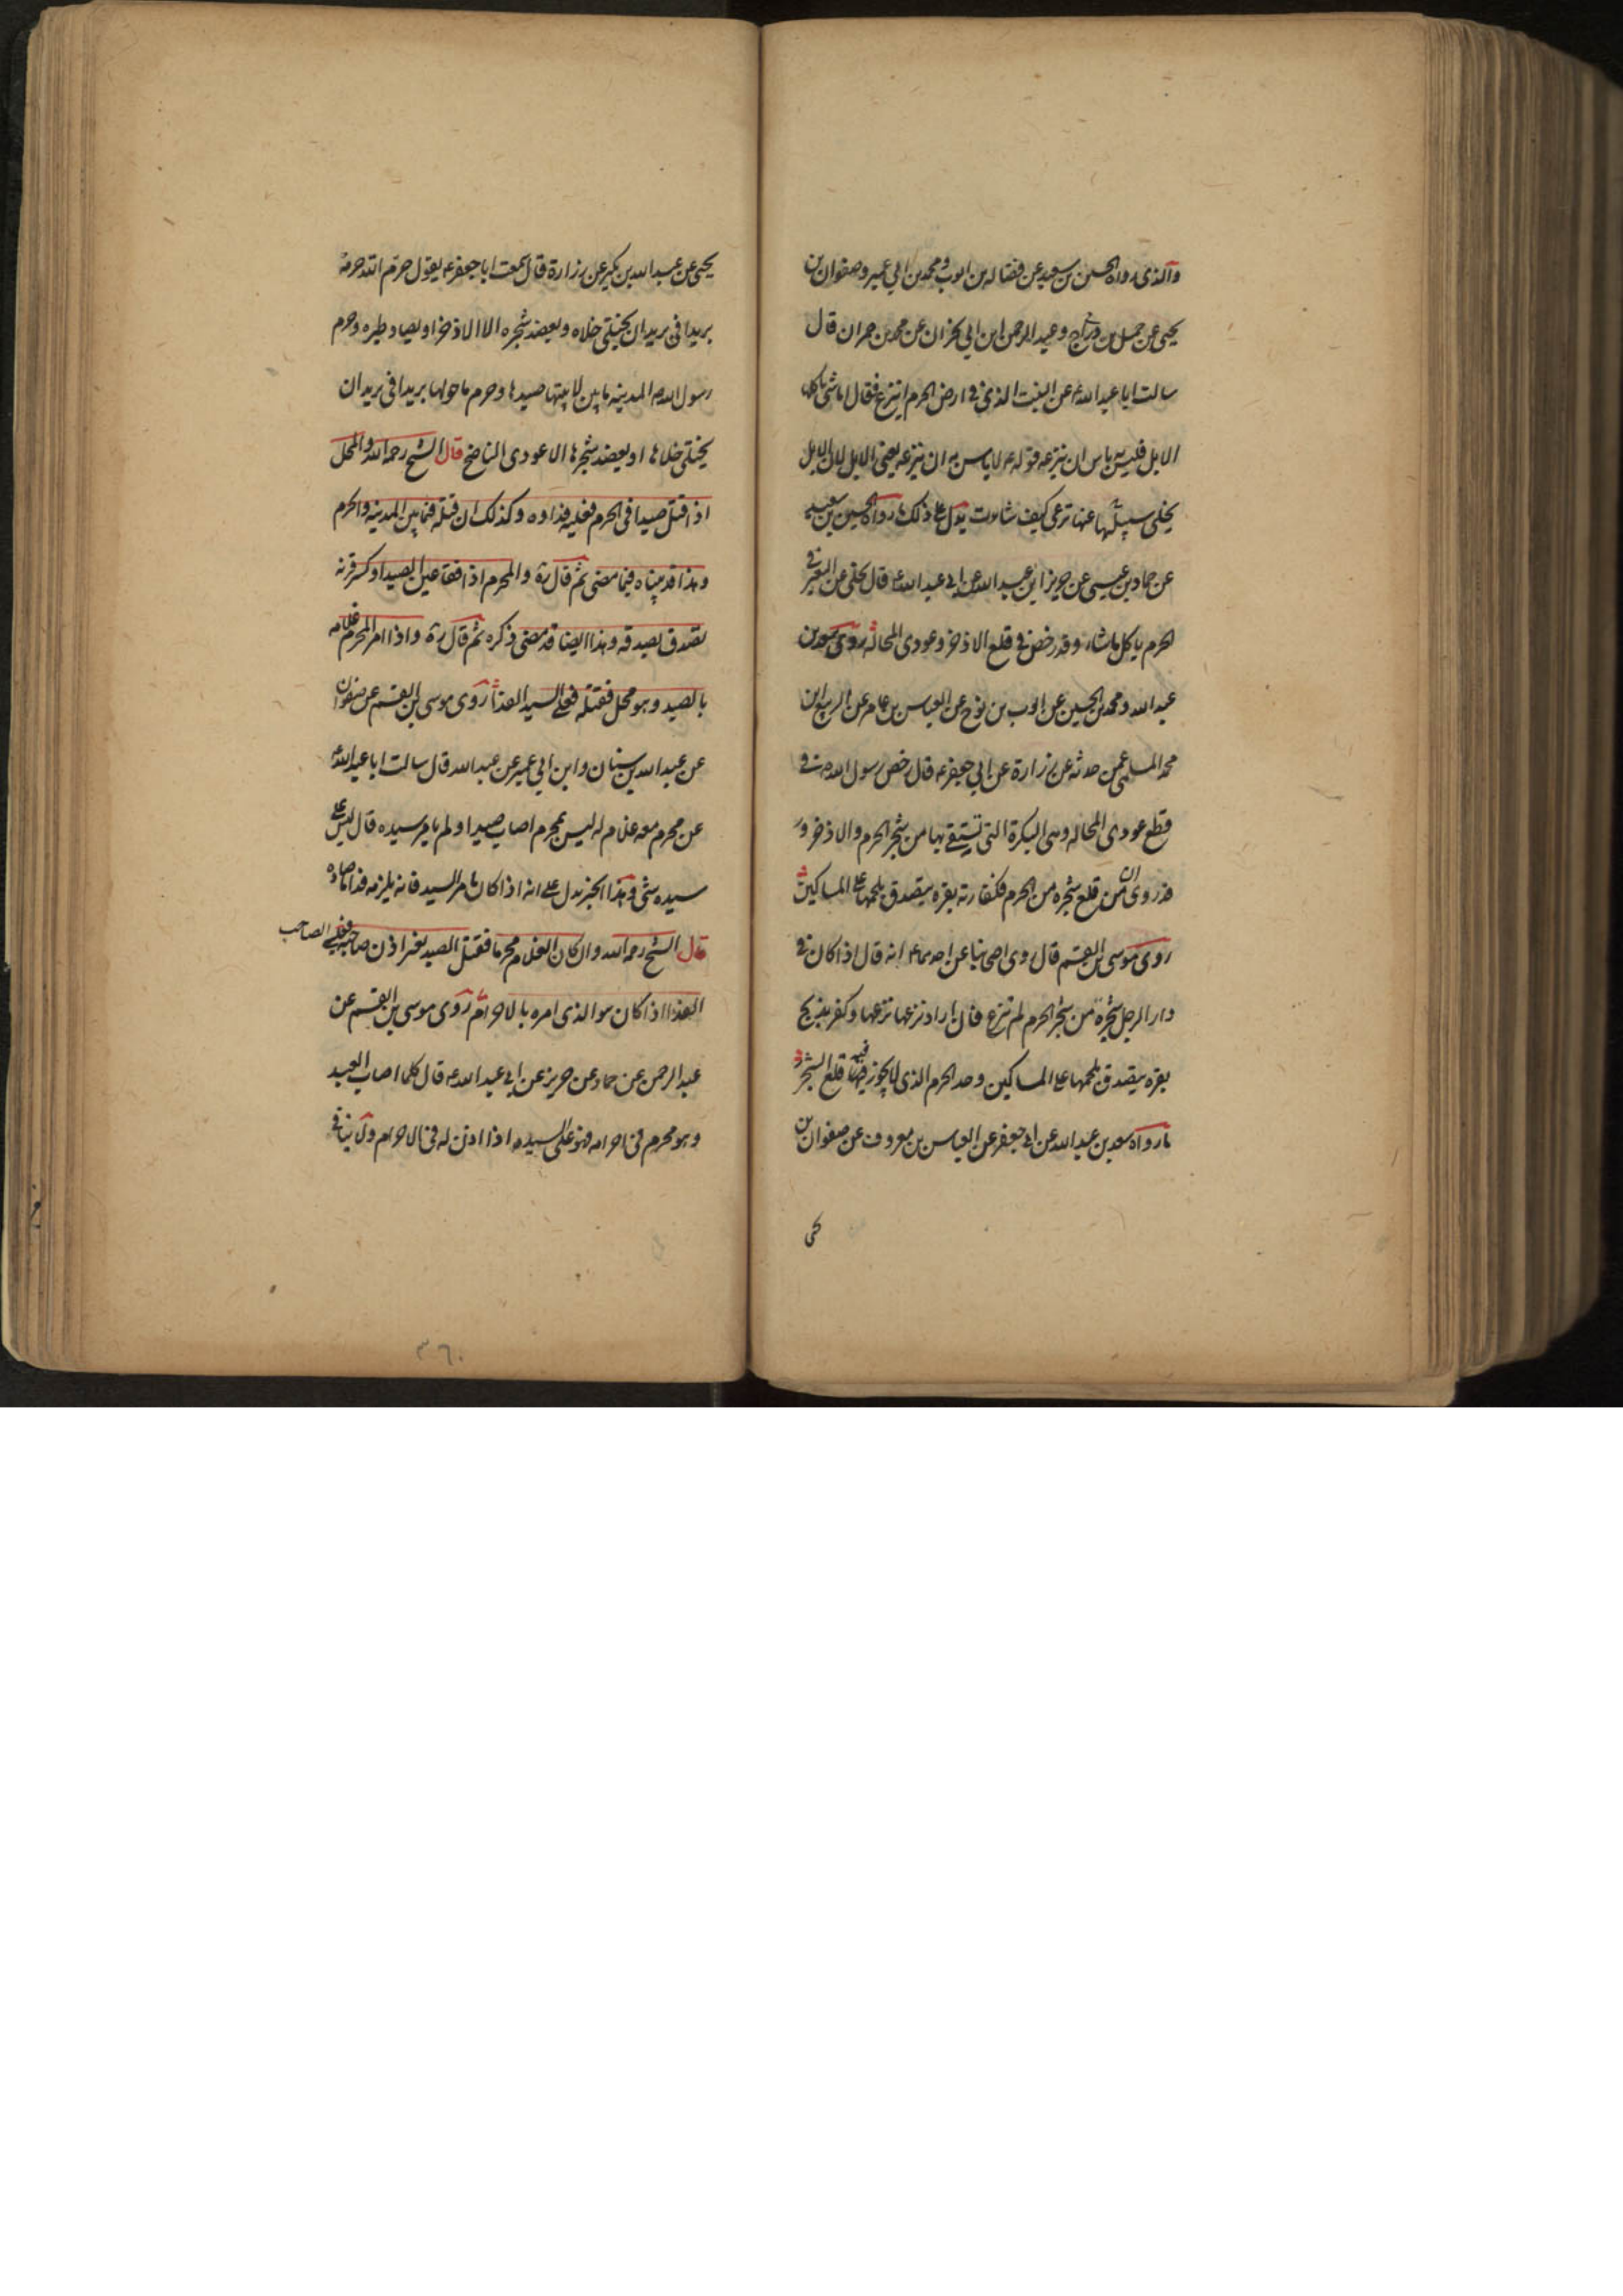 والذی رواه الحسین بن سعید عن فضاله بن ایوب ومحمد بن ابی عمیر وصفوان بن
یحیی عن جمیل بن دراج وعبد الرحمن ابن ابی نجران عن محمد بن حمران قال
سالت ابا عبد الله ع عن النبت الذی فی ارض الحرم اینزع فقال اما شئ تاکله
الابل فلیس به باس ان تنزعه قوله ع لا باس به ان تنزعه یعنی الابل لان الابل
یخلی سبیلها عنها ترعی کیف شاءت یدل علی ذلک ما رواه الحسین بن سعید
عن حماد بن عیسی عن حریز ابن عبد الله عن ابی عبد الله ع قال تخلی عن البعیر فی
الحرم یاکل ما شاء وقد رخص فی قلع الاذخر وعودی المحاله روی سعد بن
عبد الله ومحمد بن الحسین عن ایوب بن نوح عن العباس بن عامر عن الربیع ابن
محمد المسلی عمن حدثه عن زرارة عن ابی جعفر ع قال رخص رسول الله ص فی
قطع عودی المحاله وهی البکرة التی تستقی بها من شجر الحرم والاذخر و
من قلع شجره من الحرم فکفارته بقره یتصدق بلحمها علی المساکین
روی موسی بن القسم قال روی اصحابنا عن احدهما ع انه قال اذا کان فی
دار الرجل شجرة من شجر الحرم لم تنزع فان اراد نزعها نزعها وکفر بذبح
بقره یتصدق بلحمها علی المساکین وحد الحرم الذی لا یجوز فیه قلع الشجر
ما رواه سعد بن عبد الله عن ابی جعفر عن العباس بن معروف عن صفوان بن
یحیی
یحیی عن عبد الله بن بکیر عن زرارة قال سمعت ابا جعفر ع یقول حرم الله حرمه
بریدا فی برید ان یختلی خلاه ویعضد شجره الا الاذخر او یصاد طیره وحرم
رسول الله ص المدینه ما بین لابیتها صیدها وحرم ما حولها بریدا فی برید ان
یختلی خلاها او یعضد شجرها الا عودی الناضح قال الشیخ رحمه الله والمحل
اذا قتل صیدا فی الحرم فعلیه فداوه وکذلک ان قتله فیما بین المدینه والحرم
وهذا قد بیناه فیما مضی ثم قال ره والمحرم اذا فقا عین الصید او کسر قرنه
تصدق بصدقه وهذا ایضا قد مضی ذکره ثم قال ره واذا امر المحرم غلامه
بالصید وهو محل فقتله فعلی السید الفدا روی موسی بن القسم عن صفوان
عن عبد الله بن سنان وابن ابی عمیر عن عبد الله قال سالت ابا عبد الله ع
عن محرم معه غلام له لیس بمحرم اصاب صیدا ولم یامره سیده قال لیس علی
سیده شئ وهذا الخبر یدل علی انه اذا کان بامر السید فانه یلزمه فدا ما صاده
قال الشیخ رحمه الله وان کان الغلام محرما فقتل الصید بغیر اذن صاحبه فعلی الصاحب
الفدا اذا کان هو الذی امره بالاحرام روی موسی بن القسم عن
عبد الرحمن عن حماد عن حریز عن ابی عبد الله ع قال کلما اصاب العبد
وهو محرم فی احرامه فهو علی السید اذا اذن له فی الاحرام ولا ینافی
٣٦٠